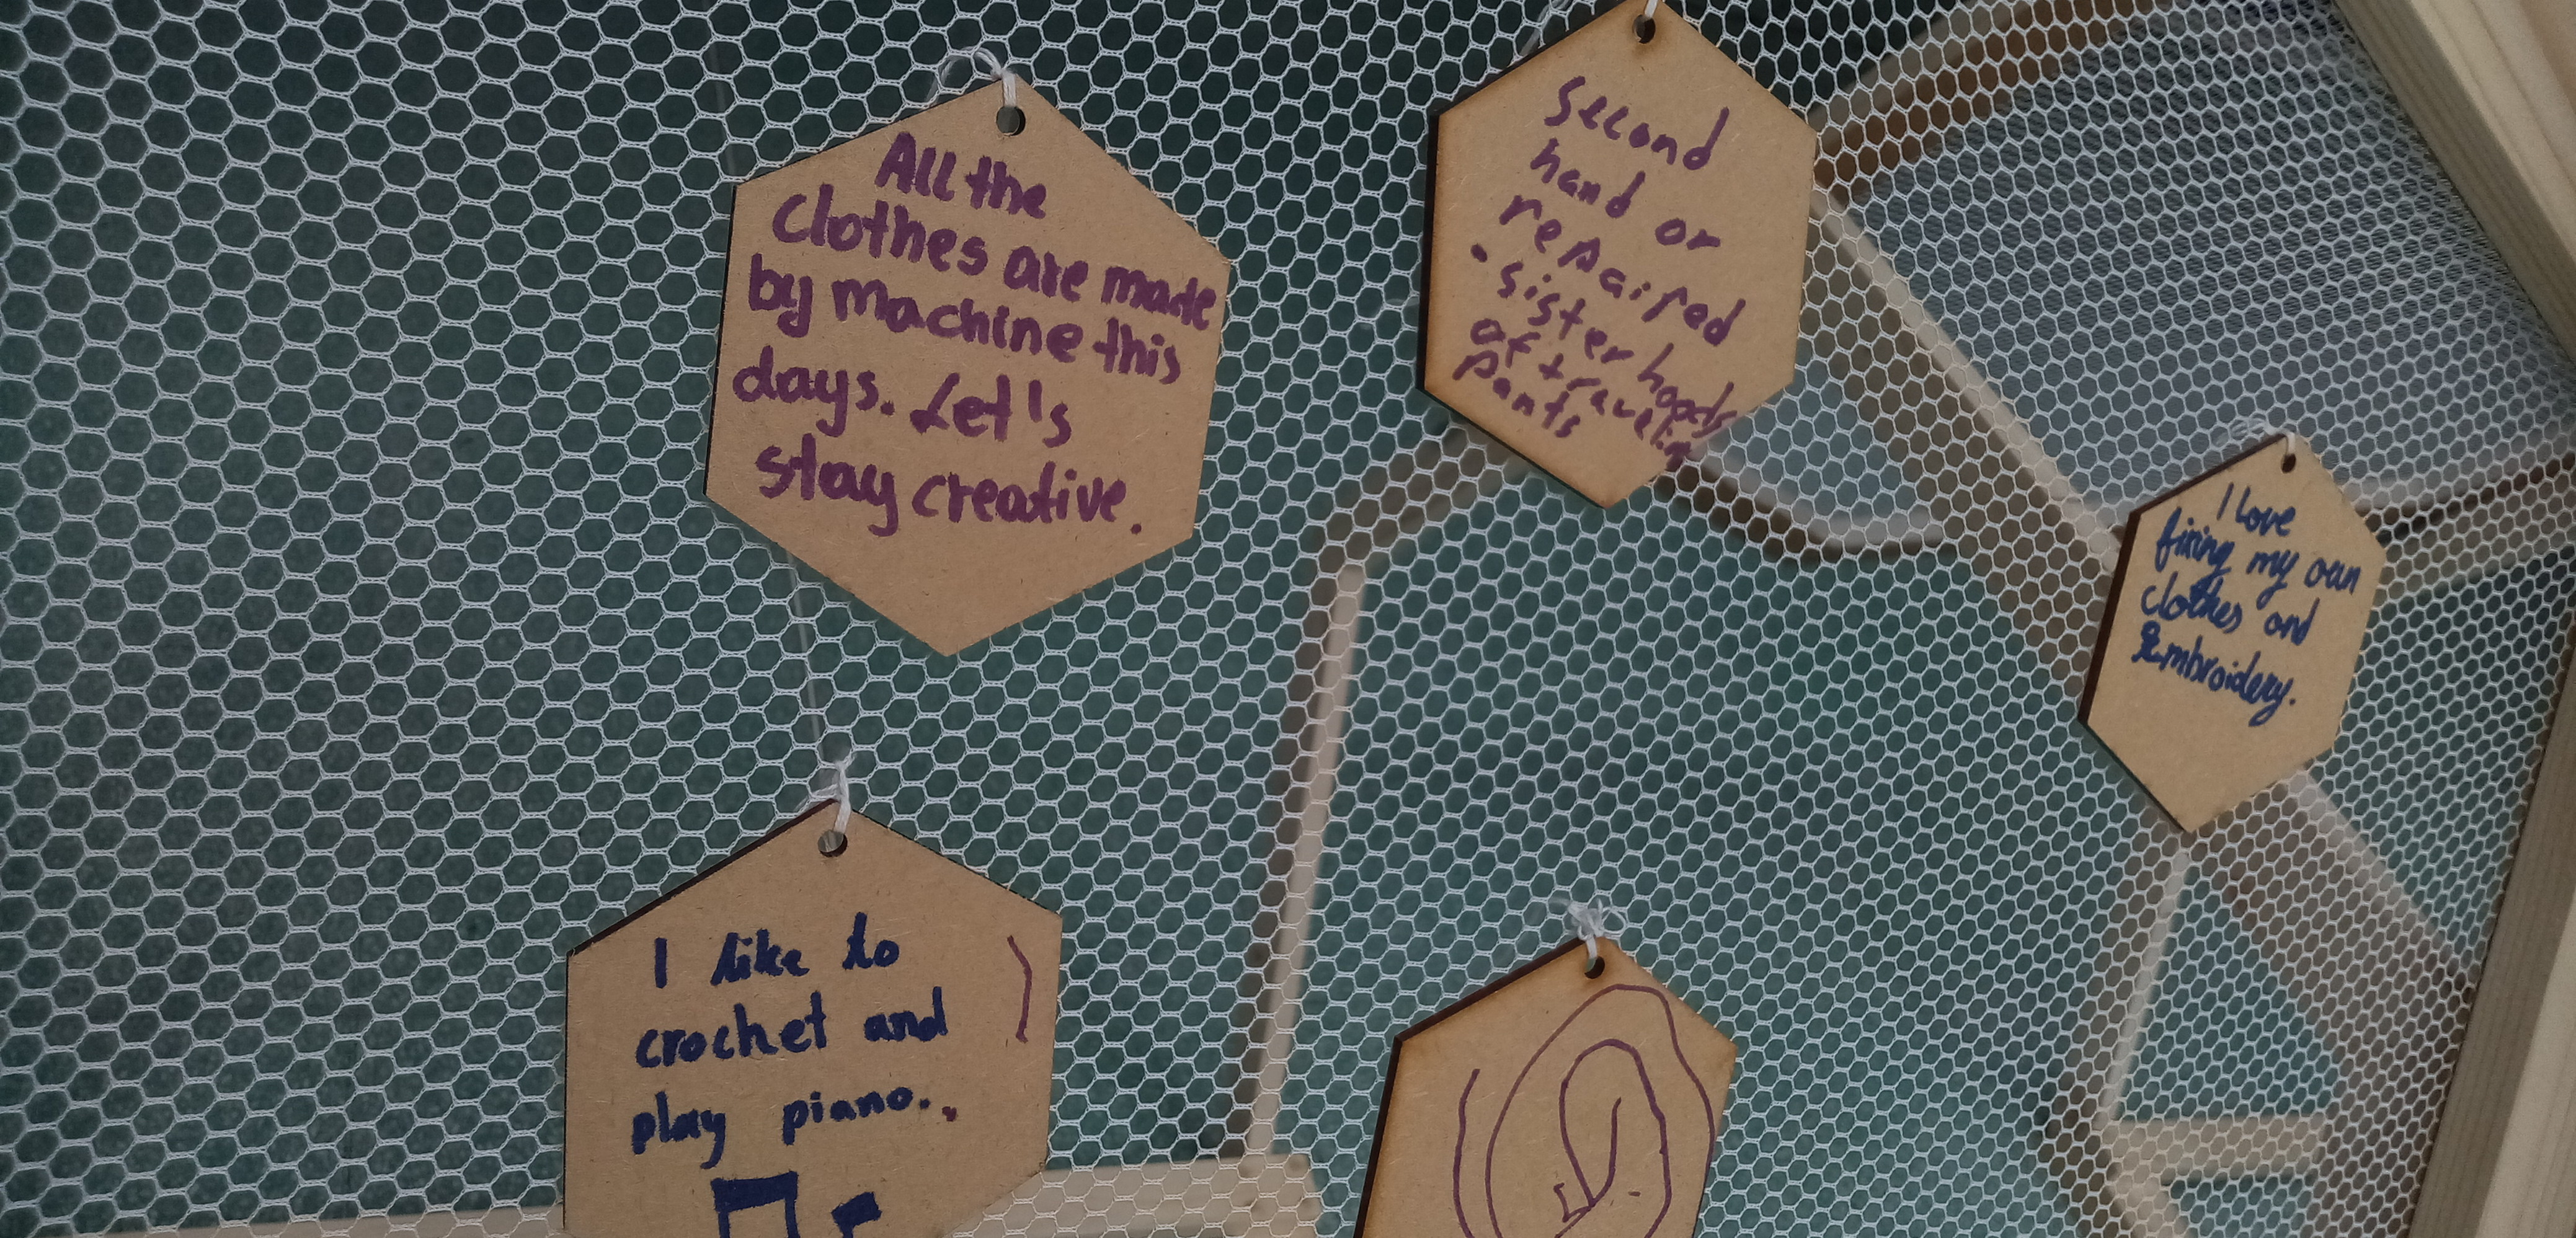 All the
Clothes are made
by machine this
days. Let's
stay creative.
Second
hand or
repaired
• sisterhoods
of traveling
pants
I love
fixing my own
clothes and
Embroidery.
I like to
crochet and
play piano.